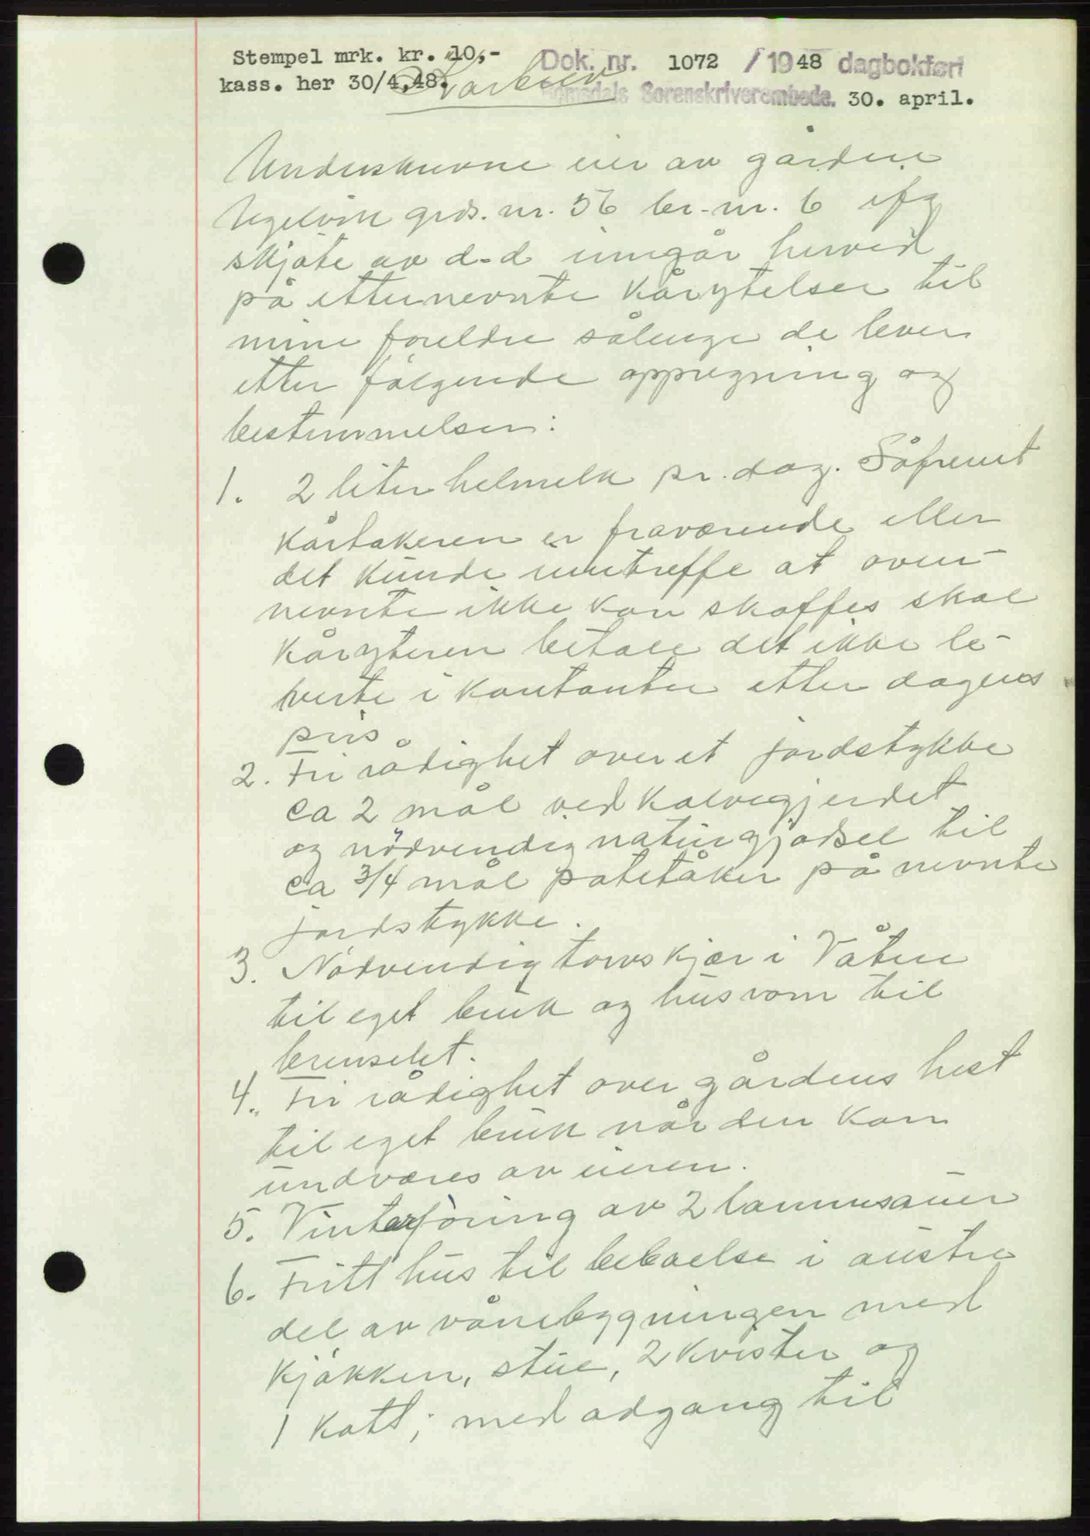 Stempel mrk. kr. 10,-
kass. her 30/4.48.
Dok. nr. 1072 / 1948 dagbokført
Romsdals Sorenskriverembede. 30. april.
Underskrevne eier av gården
Ugelvik grds. nr. 56 br. nr. 6 ifg
skjøte av d.d inngår herved
på etternevnte kårytelser til
mine foreldre sålenge de lever
etter følgende oppregning og
bestemmelser:
1. 2 liter helmelk pr. dag. Såfremt
kårtakeren er fraværende eller
det kunde inntreffe at oven-
nevnte ikke kan skaffes skal
kåryteren betale det ikke le-
verte i kontanter etter dagens
pris.
2. Fri rådighet over et jordstykke
ca 2 mål ved Kalvegjerdet
og nödvendig naturgjødsel til
ca 3/4 mål potetåker på nevnte
jordstykke.
3. Nødvendig torvskjær i Våtene
til eget bruk og husrom til
brenselet.
4. Fri rådighet over gårdens hest
til eget bruk når den kan
undværes av eieren.
5. Vinterforing av 2 lammsauer
6. Fritt hus til beboelse i austre
del av vånebygningen med
kjøkken, stue, 2 kvister og
1 kott; med adgang til